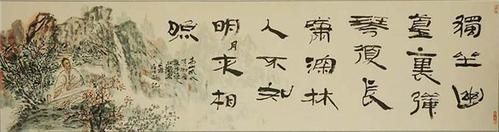 獨坐幽
篁裏彈
琴復長
嘯深林
人不知
明月来相
照